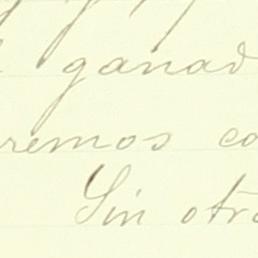 ganad
remos co
Sin otro